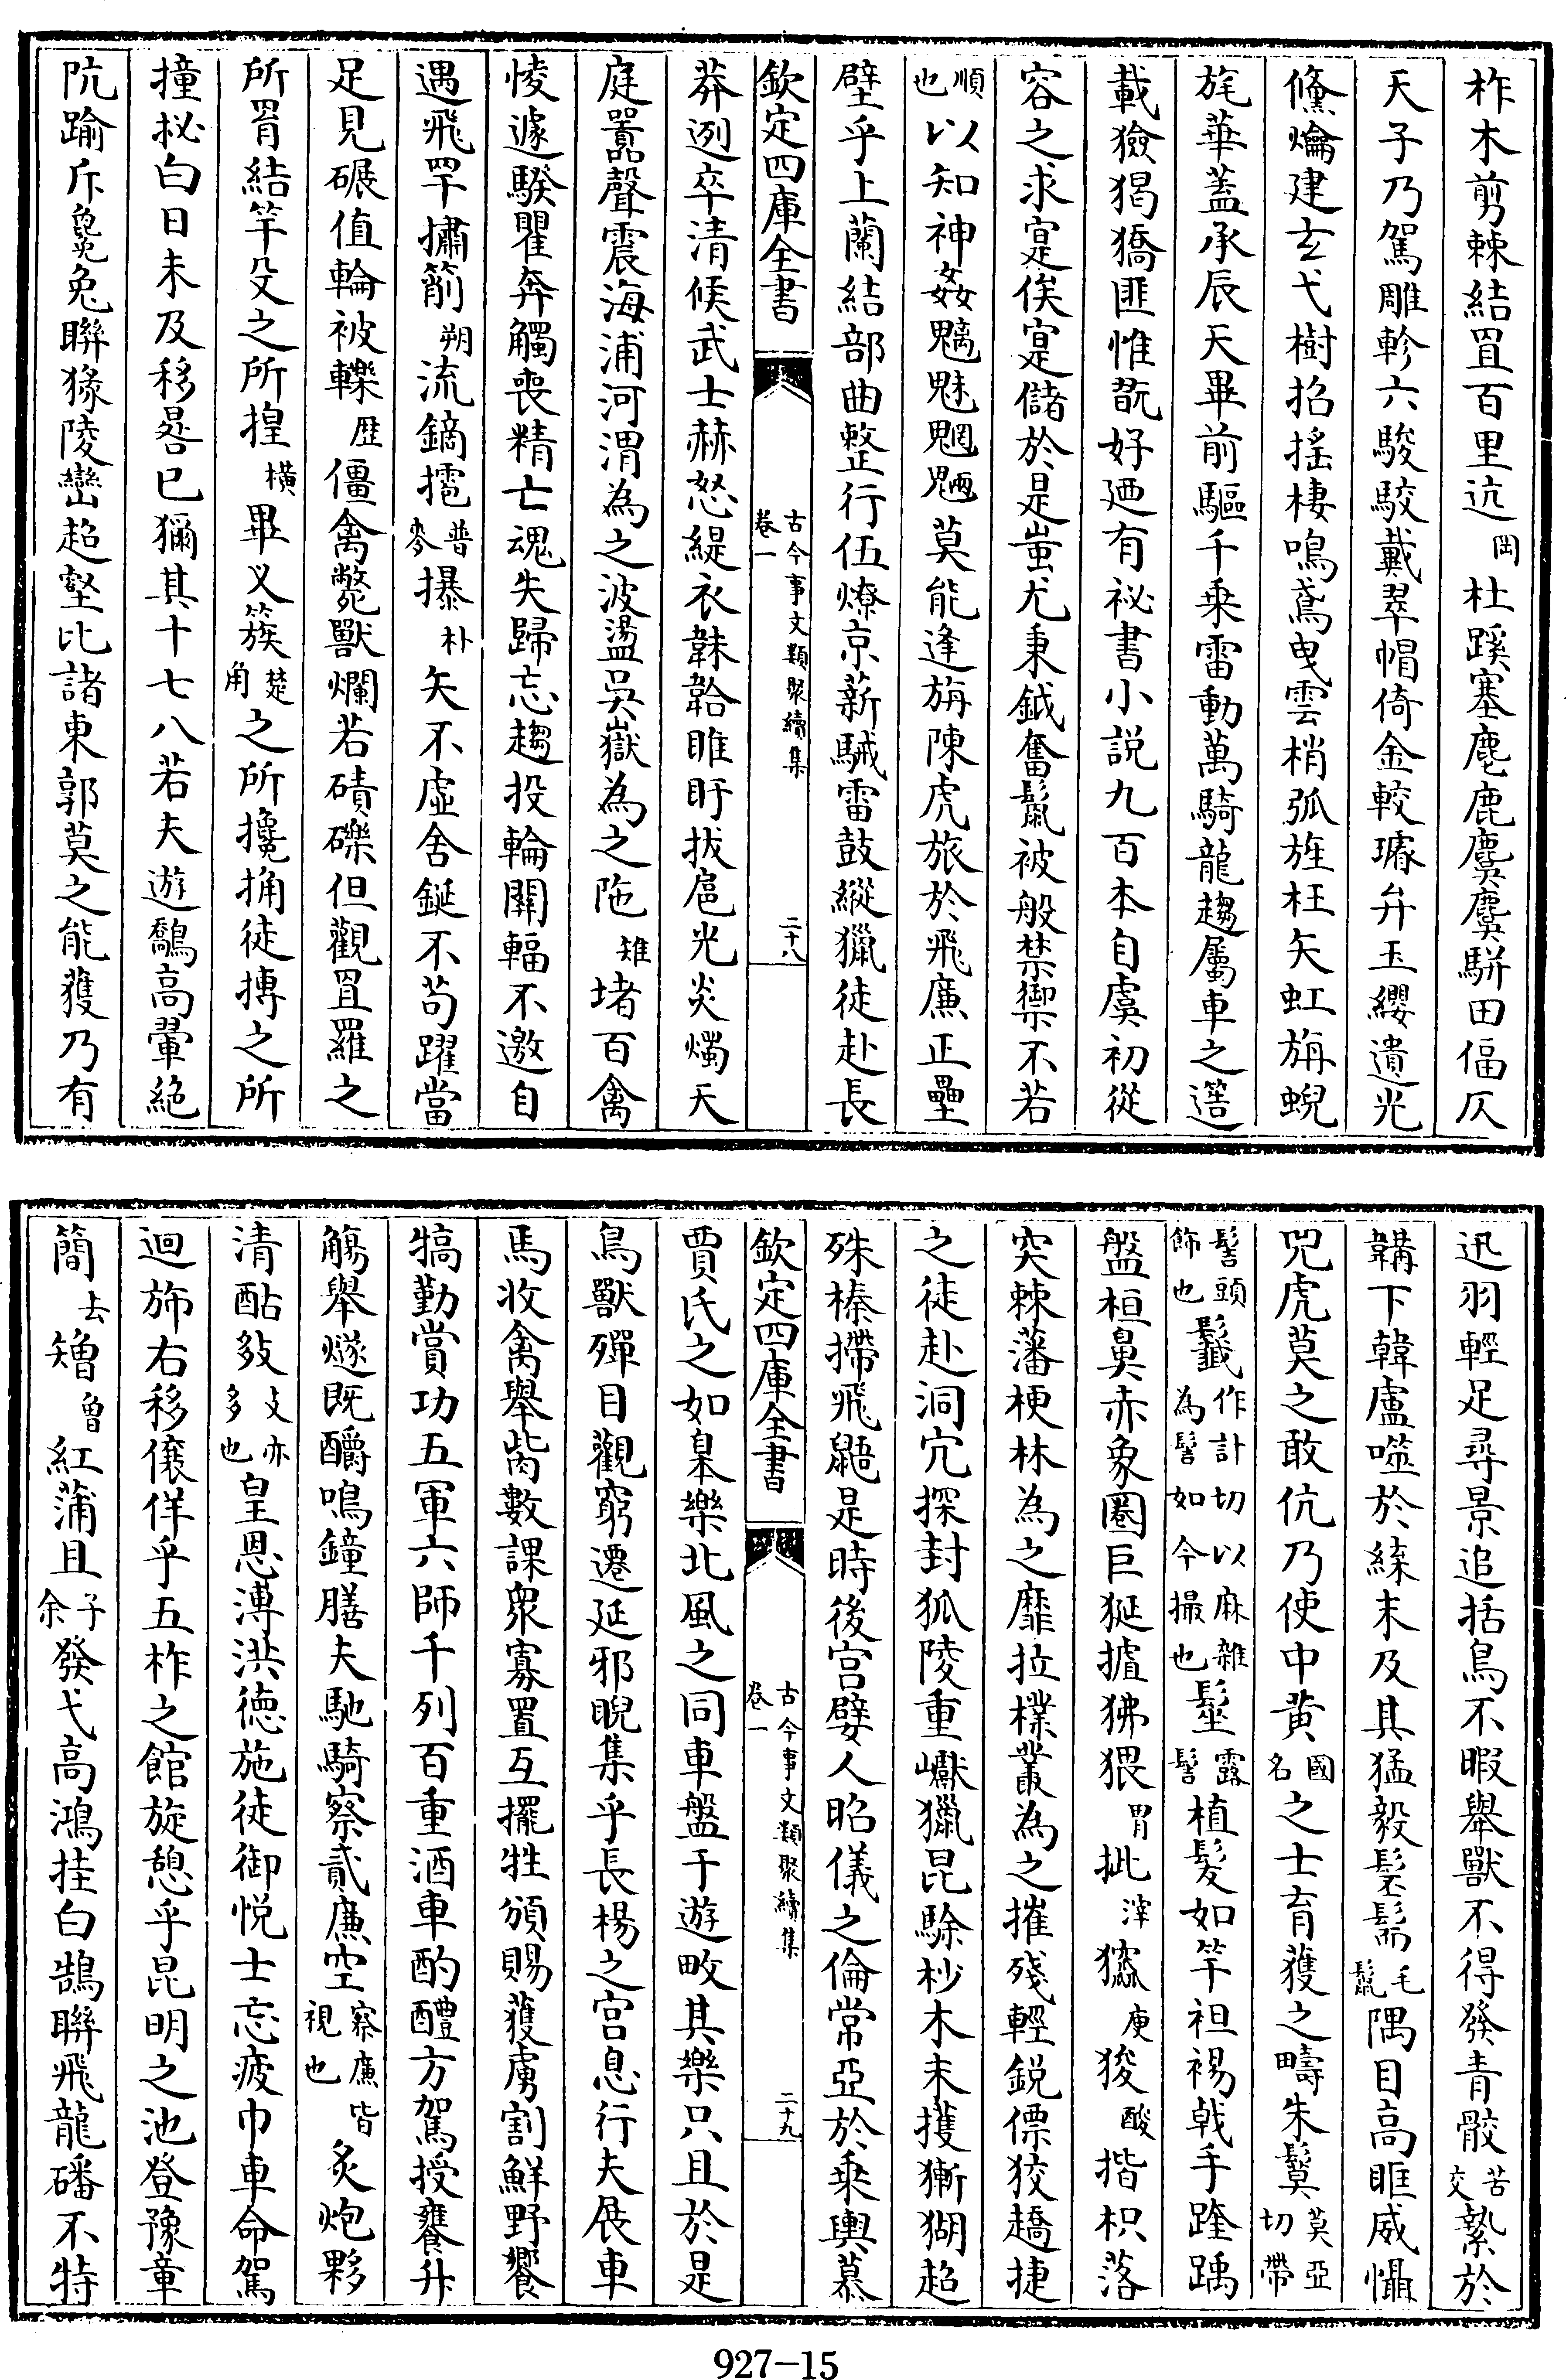 柞木剪棘結罝百里迒岡杜蹊塞麀鹿麌麌駢田偪仄
天子乃駕雕軫六駿駮戴翠帽倚金較璿弁玉纓遺光
儵爚建玄弋樹招搖棲鳴鳶曳雲梢弧旌枉矢虹旃蜺
旄華蓋承辰天畢前驅千乗雷動萬騎龍趨屬車之簉
載獫猲獢匪惟翫好廼有祕書小説九百本自虞初從
容之求寔俟寔儲於是蚩尤秉鉞奮鬛被般禁禦不若
順也以知神姦魑魅魍魎莫能逢旃陳虎旅於飛廉正壘
壁乎上蘭結部曲整行伍燎京薪駴雷鼓縱獵徒赴長
欽定四庫全書 古今事文類聚續集卷一 二十八
莽迾卒清候武士赫怒緹衣韎韐睢盱拔扈光炎燭天
庭囂聲震海浦河渭為之波盪吳嶽為之陁雉堵百禽
㥄遽騤瞿奔觸喪精亡魂失歸忘趨投輪關輻不邀自
遇飛罕潚箾朔流鏑㩧普麥㩧朴矢不虛舍鋋不茍躍當
足見碾值輪被轢歴僵禽斃獸爛若磧礫但觀罝羅之
所罥結竿殳之所揘橫畢叉簇楚角之所攙捔徒搏之所
撞㧙白日未及移晷已獮其十七八若夫遊鷮高翬絶
阬踰斥㲋兔聯猭陵巒超壑比諸東郭莫之能獲乃有
迅羽輕足尋景追括鳥不暇舉獸不得發青骹苦交摯於
韝下韓盧噬於緤末及其猛毅髬髵毛鬛隅目高眶威懾
兕虎莫之敢伉乃使中黄國名之士育獲之疇朱鬕莫亞切帶
髻頭飾也䰐作計切以麻雜為髻如今撮也髽露髻植髪如竿袒裼戟手蹝踽
盤桓鼻赤象圈巨狿摣狒猥胃批滓窳庾狻酸揩枳落
突棘藩梗林為之靡拉樸叢為之摧殘輕鋭僄狡趫捷
之徒赴洞穴探封狐陵重巘獵昆駼杪木末擭獑猢超
殊榛摕飛鼯是時後宫嬖人昭儀之倫常亞於乘輿慕
欽定四庫全書 古今事文類聚續集卷一 二十九
賈氏之如臯樂北風之同車盤于遊畋其樂只且於是
鳥獸殫目觀窮遷延邪睨集乎長楊之宫息行夫展車
馬收禽舉胔數課衆寡置互擺牲頒賜獲虜割鮮野饗
犒勤賞功五軍六師千列百重酒車酌醴方駕授饔升
觴舉燧既釂鳴鐘膳夫馳騎察貳廉空察廉皆視也炙炮夥
清酤㩼㩼亦多也皇恩溥洪德施徒御悦士忘疲巾車命駕
迴斾右移儴佯乎五柞之館旋憩乎昆明之池登豫章
簡去矰曾紅蒲且子余發弋高鴻挂白鵠聯飛龍磻不特
927—15